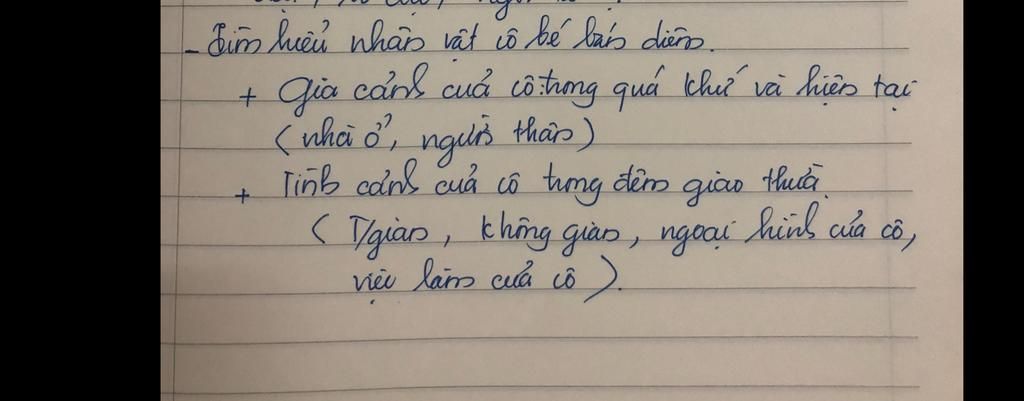 - Tìm hiểu nhân vật cô bé bán diêm.
+ Gia cảnh của cô: trong quá khứ và hiện tại
(nhà ở, người thân)
+ Tình cảnh của cô trong đêm giao thừa.
(T/gian, không gian, ngoại hình của cô,
việc làm của cô).